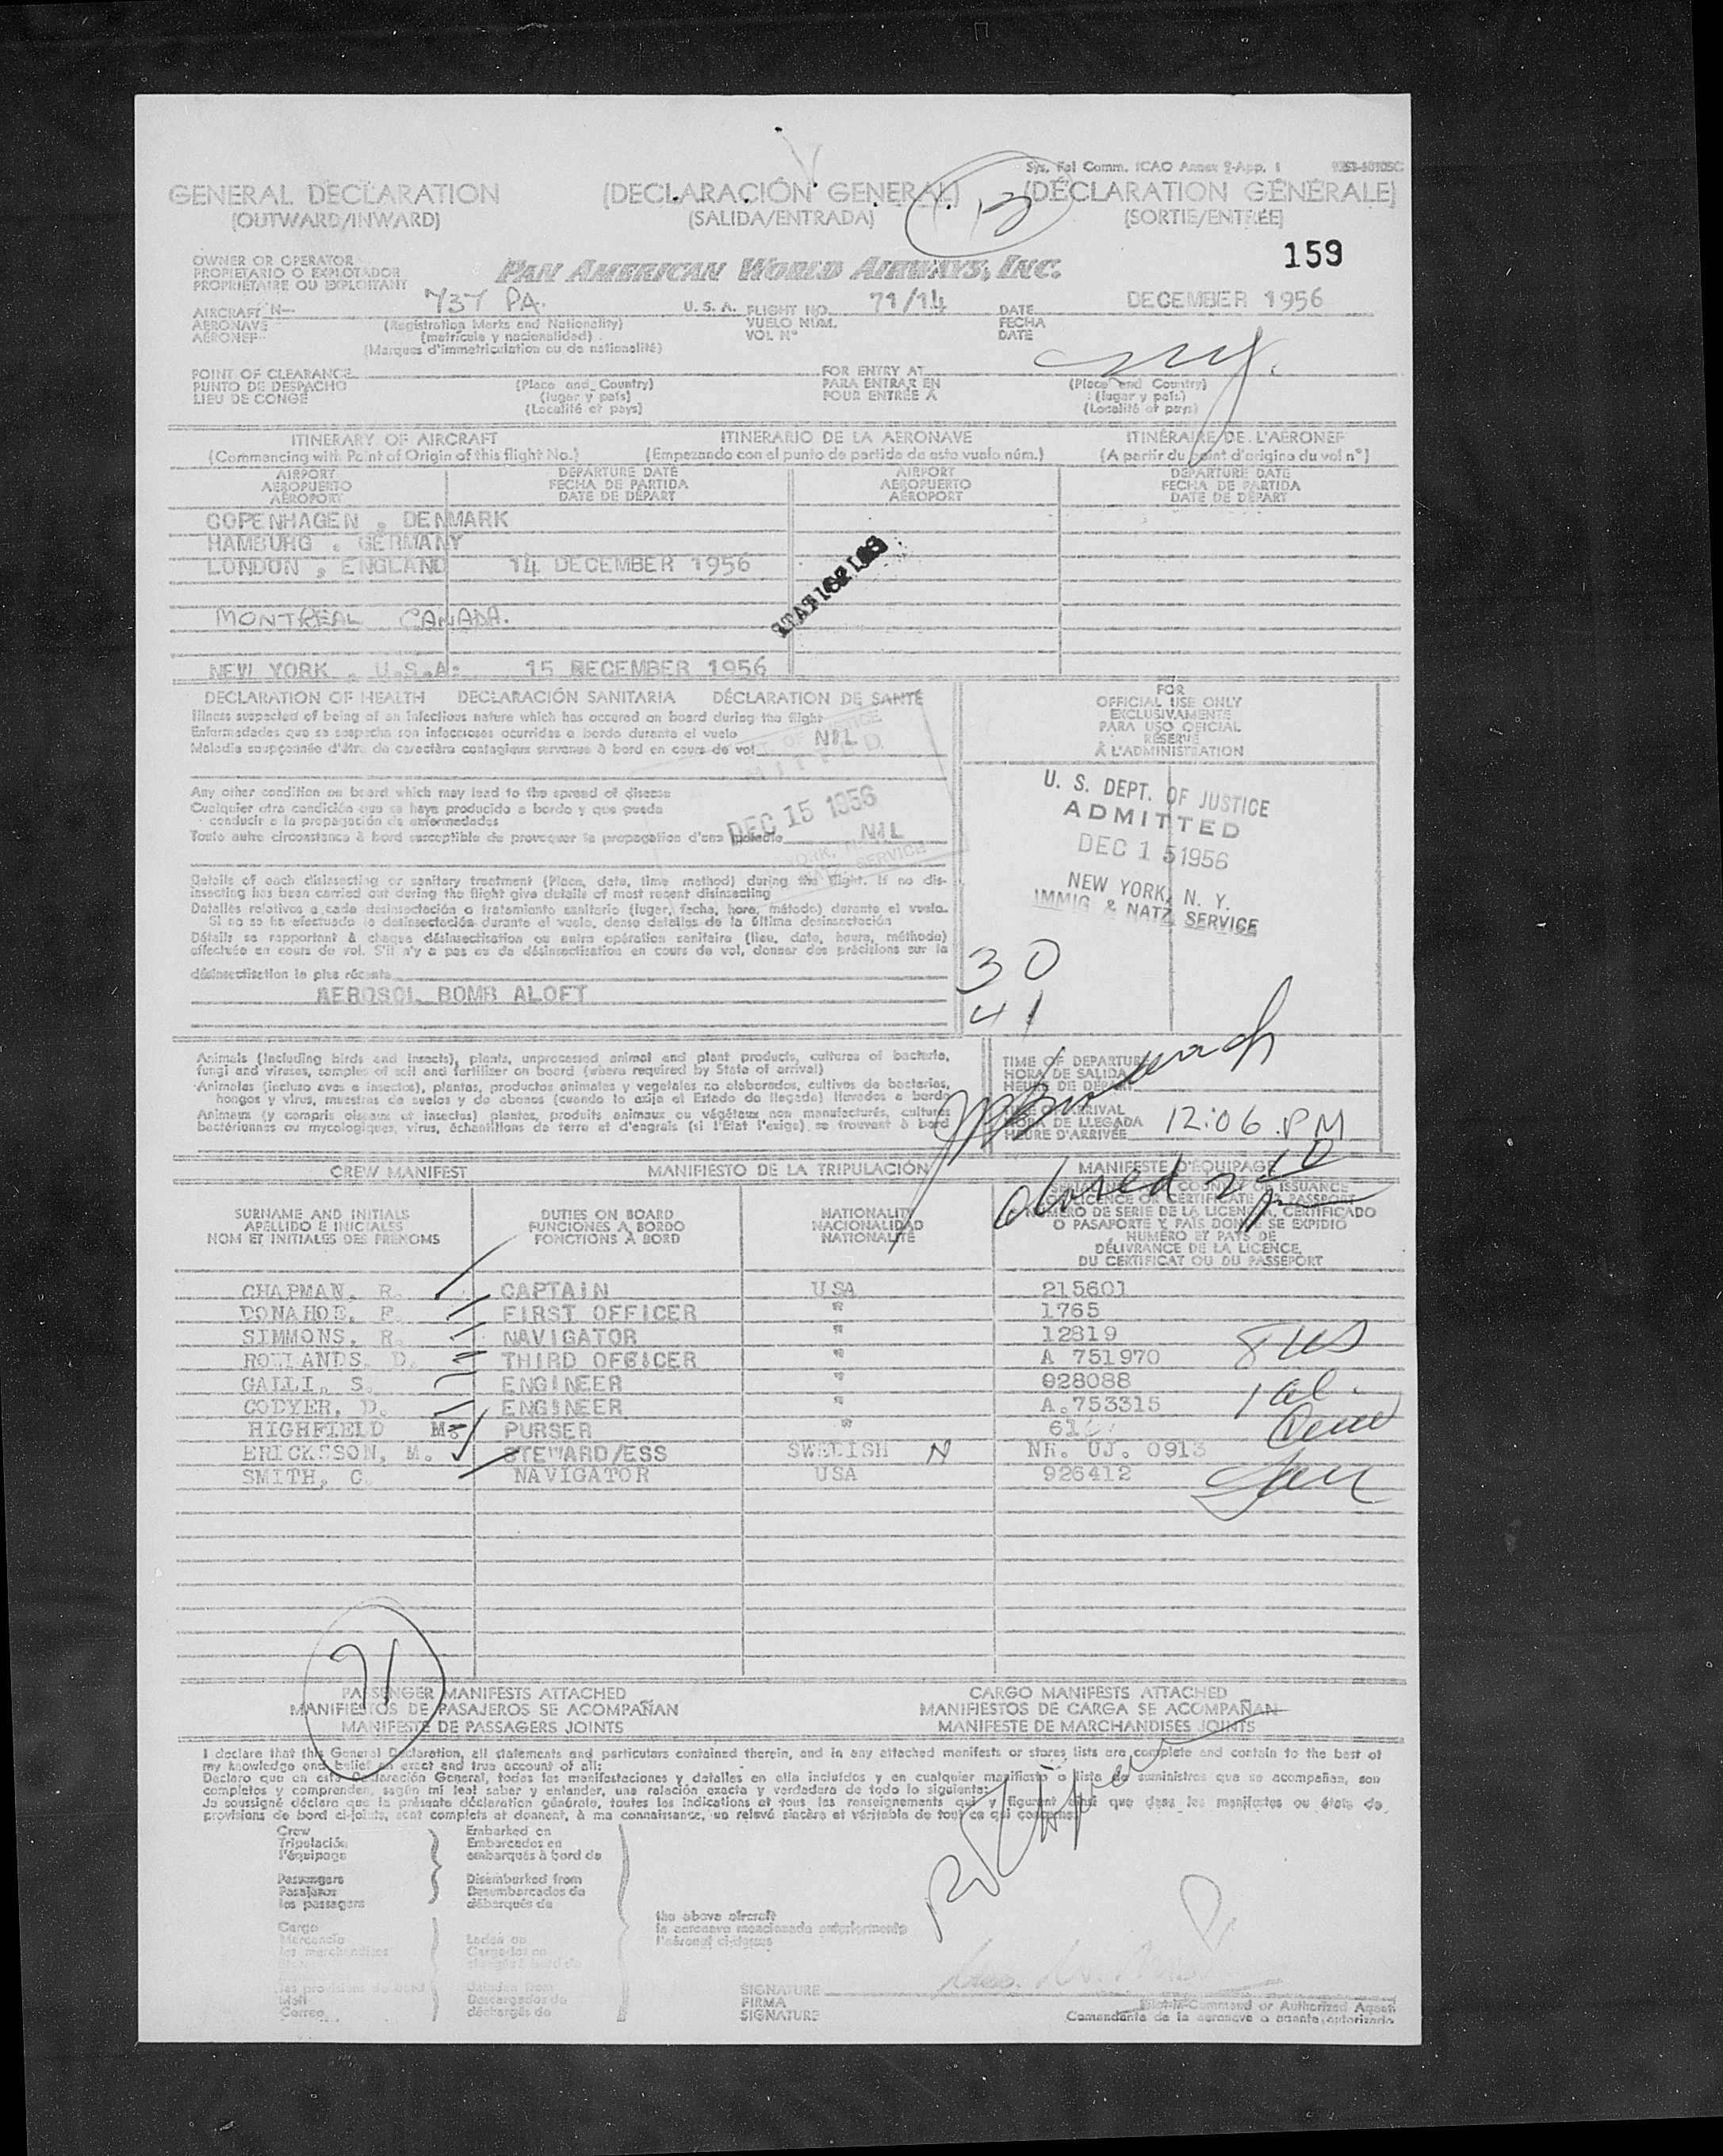 Sys. Fal Comm. ICAO Annex 9-App. 1
GENERAL DECLARATION (DECLARACIÓN GENERAL) (DÉCLARATION GÉNÉRALE)
(OUTWARD/INWARD) (SALIDA/ENTRADA) (SORTIE/ENTRÉE)
13
159
OWNER OR OPERATOR
PROPIETARIO O EXPLOTADOR
PROPRIÉTAIRE OU EXPLOITANT
PAN AMERICAN WORLD AIRWAYS, INC.
AIRCRAFT N— 737 PA. U. S. A. FLIGHT NO. 71/14 DATE DECEMBER 1956
AERONAVE (Registration Marks and Nationality) VUELO NÚM. FECHA
AÉRONEF (matrícula y nacionalidad) VOL N° DATE
(Marques d'immatriculation ou de nationalité)
POINT OF CLEARANCE FOR ENTRY AT NY.
PUNTO DE DESPACHO (Place and Country) PARA ENTRAR EN (Place and Country)
LIEU DE CONGÉ (lugar y país) POUR ENTRÉE A (lugar y país)
(Localité et pays) (Localité et pays)
ITINERARY OF AIRCRAFT ITINERARIO DE LA AERONAVE ITINÉRAIRE DE L'AÉRONEF
(Commencing with Point of Origin of this flight No.) (Empezando con el punto de partida de este vuelo núm.) (A partir du point d'origine du vol n°)
AIRPORT DEPARTURE DATE AIRPORT DEPARTURE DATE
AEROPUERTO FECHA DE PARTIDA AEROPUERTO FECHA DE PARTIDA
AÉROPORT DATE DE DÉPART AÉROPORT DATE DE DÉPART
COPENHAGEN , DENMARK
HAMBURG , GERMANY
LONDON , ENGLAND 14 DECEMBER 1956
STATISTICS
MONTREAL CANADA.
NEW YORK , U.S.A. 15 DECEMBER 1956
DECLARATION OF HEALTH DECLARACIÓN SANITARIA DÉCLARATION DE SANTÉ
Illness suspected of being of an infectious nature which has occured on board during the flight
Enfermedades que se sospecha son infecciosas ocurridas a bordo durante el vuelo
Maladie soupçonnée d'être de caractère contagieux survenue à bord en cours de vol NIL
Any other condition on board which may lead to the spread of disease
Cualquier otra condición que se haya producido a bordo y que pueda
conducir a la propagación de enfermedades
Toute autre circonstance à bord susceptible de provoquer la propagation d'une maladie NIL
DEC 15 1956
Details of each disinsecting or sanitary treatment (Place, date, time method) during the flight. If no dis-
insecting has been carried out during the flight give details of most recent disinsecting
Detalles relativos a cada desinsectación o tratamiento sanitario (lugar, fecha, hora, método) durante el vuelo.
Si no se ha efectuado la desinsectación durante el vuelo, dense detalles de la última desinsectación
Détails se rapportant à chaque désinsectisation ou autre opération sanitaire (lieu, date, heure, méthode)
effectuée en cours de vol. S'il n'y a pas eu de désinsectisation en cours de vol, donner des précisions sur la
désinsectisation la plus récente
AEROSOL BOMB ALOFT
FOR
OFFICIAL USE ONLY
EXCLUSIVAMENTE
PARA USO OFICIAL
RÉSERVÉ
À L'ADMINISTRATION
U. S. DEPT. OF JUSTICE
ADMITTED
DEC 15 1956
NEW YORK, N. Y.
IMMIG. & NATZ. SERVICE
30
41
Animals (including birds and insects), plants, unprocessed animal and plant products, cultures of bacteria,
fungi and viruses, samples of soil and fertilizer on board (where required by State of arrival)
Animales (incluso aves e insectos), plantas, productos animales y vegetales no elaborados, cultivos de bacterias,
hongos y virus, muestras de suelos y de abonos (cuando lo exija el Estado de llegada) llevados a bordo
Animaux (y compris oiseaux et insectes) plantes, produits animaux ou végétaux non manufacturés, cultures
bactériennes ou mycologiques, virus, échantillons de terre et d'engrais (si l'État l'exige), se trouvant à bord
TIME OF DEPARTURE
HORA DE SALIDA
HEURE DE DÉPART
TIME OF ARRIVAL
HORA DE LLEGADA
HEURE D'ARRIVÉE 12:06 PM
CREW MANIFEST MANIFIESTO DE LA TRIPULACIÓN MANIFESTE D'ÉQUIPAGE
SURNAME AND INITIALS DUTIES ON BOARD NATIONALITY
APELLIDO E INICIALES FUNCIONES A BORDO NACIONALIDAD
NOM ET INITIALES DES PRÉNOMS FONCTIONS À BORD NATIONALITÉ
NÚMERO DE SERIE DE LA LICENCIA, CERTIFICADO
O PASAPORTE Y PAÍS DONDE SE EXPIDIÓ
NUMÉRO ET PAYS DE
DÉLIVRANCE DE LA LICENCE,
DU CERTIFICAT OU DU PASSEPORT
CHAPMAN, R. CAPTAIN USA 215601
DONAHOE, F. FIRST OFFICER " 1765
SIMMONS, R. NAVIGATOR " 12819 8 US
ROWLANDS, D. THIRD OFFICER " A 751970
GALLI, S. ENGINEER " 928088 1 al.
CODYER, D. ENGINEER " A.753315
HIGHFIELD M. PURSER "
ERICKSSON, M. STEWARD/ESS SWEDISH N NR. UJ. 0913
SMITH, C. NAVIGATOR USA 926412
71
PASSENGER MANIFESTS ATTACHED CARGO MANIFESTS ATTACHED
MANIFIESTOS DE PASAJEROS SE ACOMPAÑAN MANIFIESTOS DE CARGA SE ACOMPAÑAN
MANIFESTE DE PASSAGERS JOINTS MANIFESTE DE MARCHANDISES JOINTS
I declare that this General Declaration, all statements and particulars contained therein, and in any attached manifests or stores lists are complete and contain to the best of
my knowledge and belief an exact and true account of all:
Declaro que en esta Declaración General, todas las manifestaciones y detalles en ella incluídos y en cualquier manifiesto o lista de suministros que se acompañan, son
completos y comprenden, según mi leal saber y entender, una relación exacta y verdadera de todo lo siguiente:
Je soussigné déclare que la présente déclaration générale, toutes les indications et tous les renseignements qui y figurent ainsi que dans les manifestes ou états de
provisions de bord ci-joints, sont complets et donnent, à ma connaissance, un relevé sincère et véritable de tout ce qui concerne:
Crew Embarked on
Tripulación Embarcados en
l'équipage embarqués à bord de
Passengers Disembarked from
Pasajeros Desembarcados de
les passagers débarqués de
the above aircraft
la aeronave mencionada anteriormente
l'aéronef ci-dessus
Cargo Laden on
Mercancía Cargados en
les marchandises
les provisions de bord Unladen from
Mail Descargados de
Correo déchargés de
SIGNATURE
FIRMA
SIGNATURE
Pilot-in-Command or Authorized Agent
Comandante de la aeronave o agente autorizado